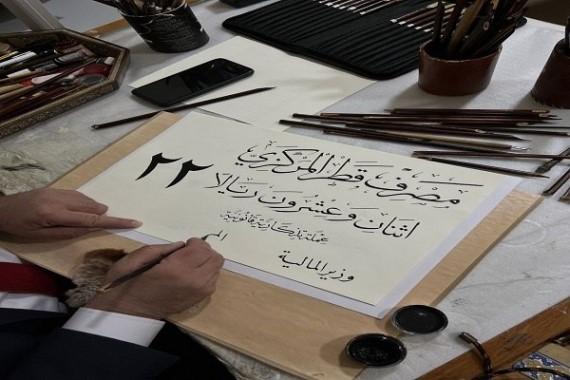 مصرف قطر المركزي
اثنان وعشرون ريالا ٢٢
عملة تذكارية قانونية
الم
وزير المالية